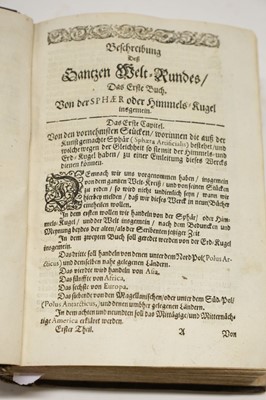 Beschreibung
Deß
Gantzen Welt-Rundes/
Das Erste Buch.
Von der SPHÆR oder Himmels-Kugel
insgemein.
Das Erste Capitel.
Von den vornehmsten Stücken/ worinnen die auß der
Kunst gemachte Sphär (Sphæra Artificialis) bestehet/ und
welcherwegen der Gleichheit so sie mit der Himmels- und
Erd-Kugel haben/ zu einer Einleitung dieses Wercks
dienen können.
DEmnach wir uns vorgenommen haben/ insgemein
von dem gantzen Welt-Kreiß/ und von seinen Stücken
zu reden/ so wird nicht undienlich seyn/ wann wir
hierbey melden/ daß wir dieses Werck in neun Bücher
eintheilen wollen.
In dem ersten wollen wir handeln von der Sphär/ oder Him-
mels-Kugel/ und der Welt ingemein/ nach dem Beduncken und
Meynung beydes der alten/ als der Scribenten jetziger Zeit
In dem zweyten Buch soll geredet werden von der Erd-Kugel
insgemein.
Das dritte soll handeln von denen unter dem Nord-Pol (Polus Ar-
cticus) und denselben nahe gelegenen Ländern.
Das vierdte wird handeln von Asia,
Das fünffte von Africa,
Das sechste von Europa,
Das siebende von den Magellanischen/ oder unter dem Süd-Pol/
(Polus Antarcticus, und denen umbher gelegenen Ländern.
In dem achten und neundten soll das Mittägige und Mitternäch-
tige America erkläret werden.
Erster Theil. A Von